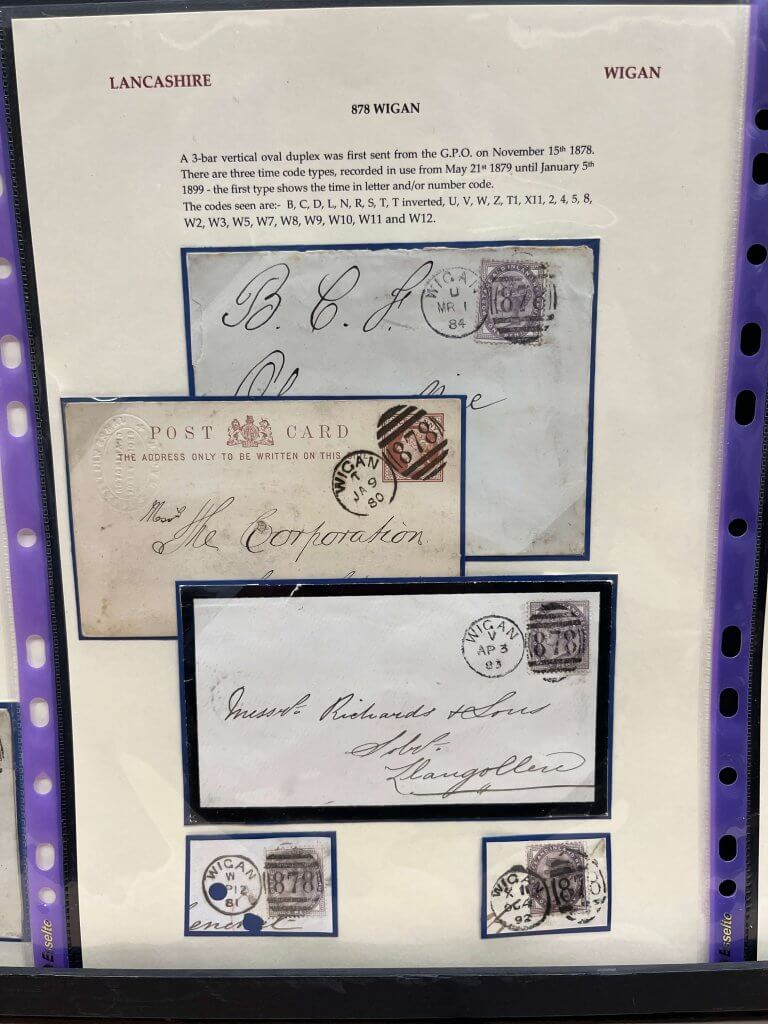 LANCASHIRE WIGAN
878 WIGAN
A 3-bar vertical oval duplex was first sent from the G.P.O. on November 15th 1878.
There are three time code types, recorded in use from May 21st 1879 until January 5th
1899 - the first type shows the time in letter and/or number code.
The codes seen are:- B, C, D, L, N, R, S, T, T inverted, U, V, W, Z, T1, X11, 2, 4, 5, 8,
W2, W3, W5, W7, W8, W9, W10, W11 and W12.
B. C. J.
WIGAN
U
MR 1
84
878
POST CARD
THE ADDRESS ONLY TO BE WRITTEN ON THIS
WIGAN
T
JA 9
80
878
Messrs The Corporation
WIGAN
V
AP 3
83
878
Messrs. Richards & Sons
Solrs.
Llangollen
WIGAN
W
P12
81
878
WIGAN
X 11
OC 4
92
878
Esselte